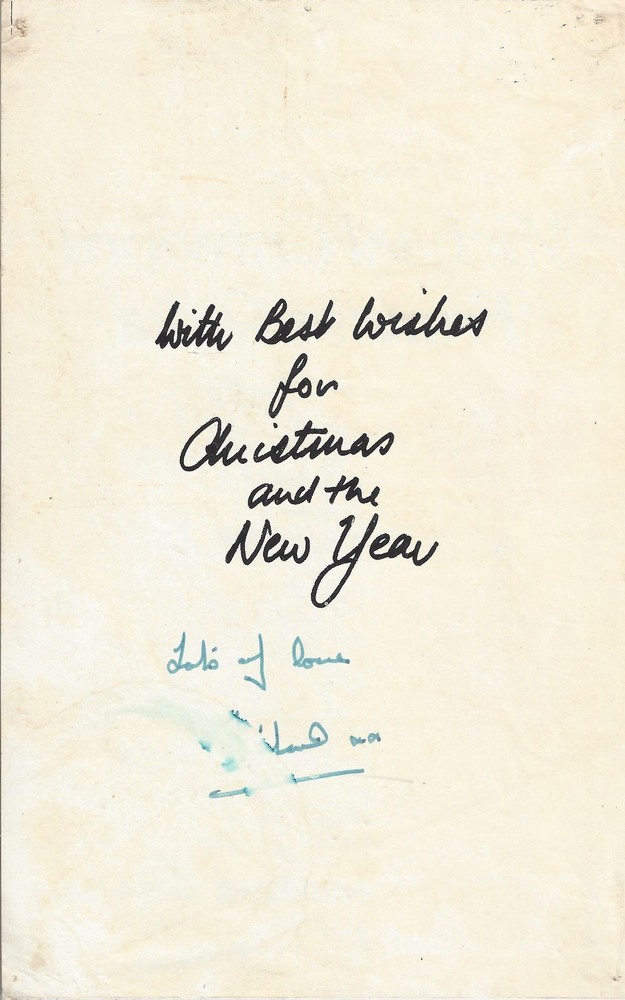 With Best Wishes
for
Christmas
and the
New Year
Lots of love
xx